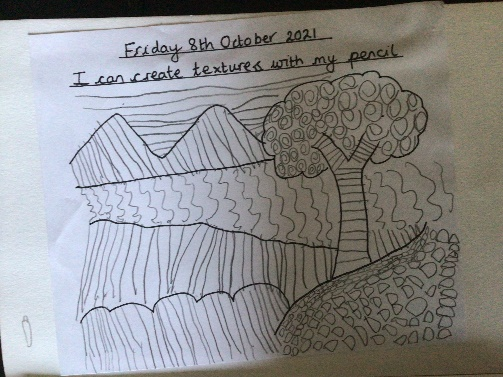 Friday 8th October 2021
I can create textures with my pencil